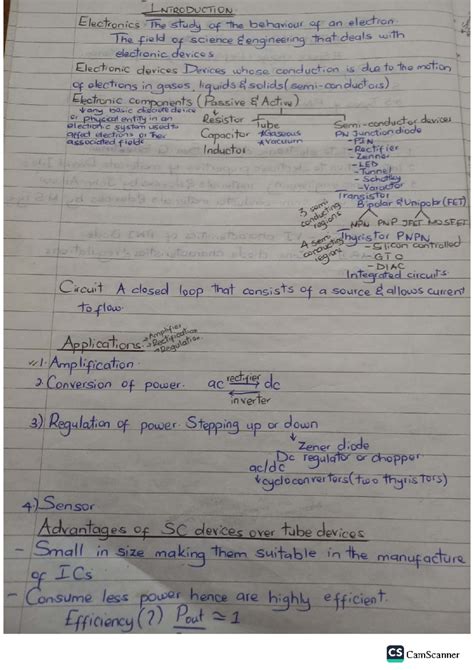 INTRODUCTION
Electronics The study of the behaviour of an electron
The field of science & engineering that deals with
electronic devices
Electronic devices Devices whose conduction is due to the motion
of electrons in gases, liquids & solids (semi-conductors)
Electronic components (Passive & Active)
any basic discrete device
or physical entity in an
electronic system used to
affect electrons or their
associated fields
Resistor
Capacitor
Inductor
Tube
Gaseous
Vacuum
Semi-conductor devices
PN Junction diode
- PIN
- Rectifier
- Zenner
- LED
- Tunnel
- Schotky
- Varactor
3 semi
conducting
regions
Transistor
Bipolar & Unipolar (FET)
NPN PNP JFET MOSFET
4 semi
conducting
regions
Thyristor PNPN
- Silicon controlled
- GTO
- DIAC
Integrated circuits
Circuit A closed loop that consists of a source & allows current
to flow.
Applications
Amplifier
Rectification
Regulation
1. Amplification
2. Conversion of power ac rectifier dc
inverter
3) Regulation of power Stepping up or down
Zener diode
Dc regulator or chopper
ac/dc
cycloconvertors (two thyristors)
4) Sensor
Advantages of SC devices over tube devices
- Small in size making them suitable in the manufacture
of ICs
- Consume less power hence are highly efficient.
Efficiency (?) Pout ≈ 1
CS CamScanner